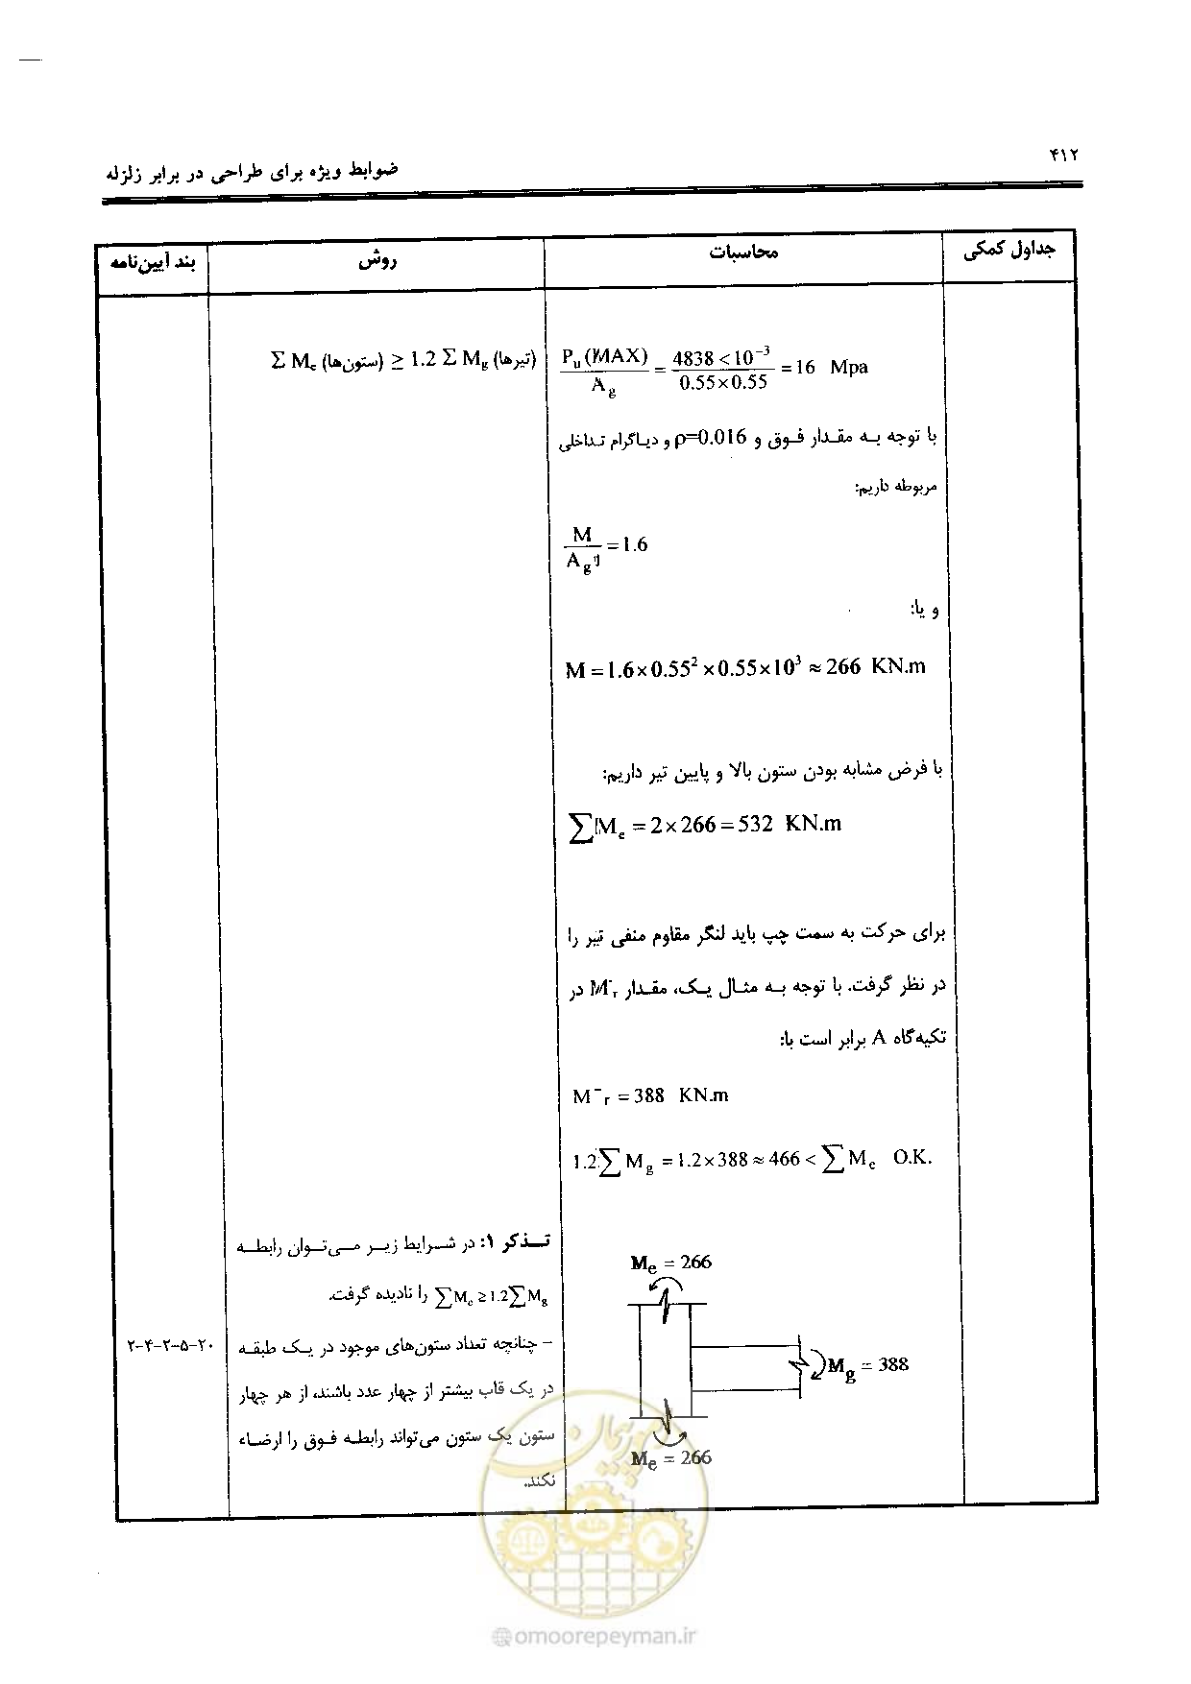 ۴۱۲
ضوابط ویژه برای طراحی در برابر زلزله
جداول کمکی
محاسبات
روش
بند آیین‌نامه
Pu (MAX) / Ag = 4838 < 10⁻³ / 0.55×0.55 = 16 Mpa
با توجه به مقدار فوق و ρ=0.016 و دیاگرام تداخلی
مربوطه داریم:
M / Ag = 1.6
و یا:
M = 1.6×0.55²×0.55×10³ ≈ 266 KN.m
با فرض مشابه بودن ستون بالا و پایین تیر داریم:
∑Me = 2×266 = 532 KN.m
برای حرکت به سمت چپ باید لنگر مقاوم منفی تیر را
در نظر گرفت. با توجه به مثال یک، مقدار M⁻r در
تکیه‌گاه A برابر است با:
M⁻r = 388 KN.m
1.2∑Mg = 1.2×388 ≈ 466 < ∑Me O.K.
Me = 266
Mg = 388
Me = 266
∑ Me (ستون‌ها) ≥ 1.2 ∑ Mg (تیرها)
تذکر ۱: در شرایط زیر می‌توان رابطه
∑Me ≥ 1.2∑Mg را نادیده گرفت.
- چنانچه تعداد ستون‌های موجود در یک طبقه
در یک قاب بیشتر از چهار عدد باشند، از هر چهار
ستون یک ستون می‌تواند رابطه فوق را ارضاء
نکند.
۲-۴-۲-۵-۲۰
امور پیمان
@omoorepeyman.ir